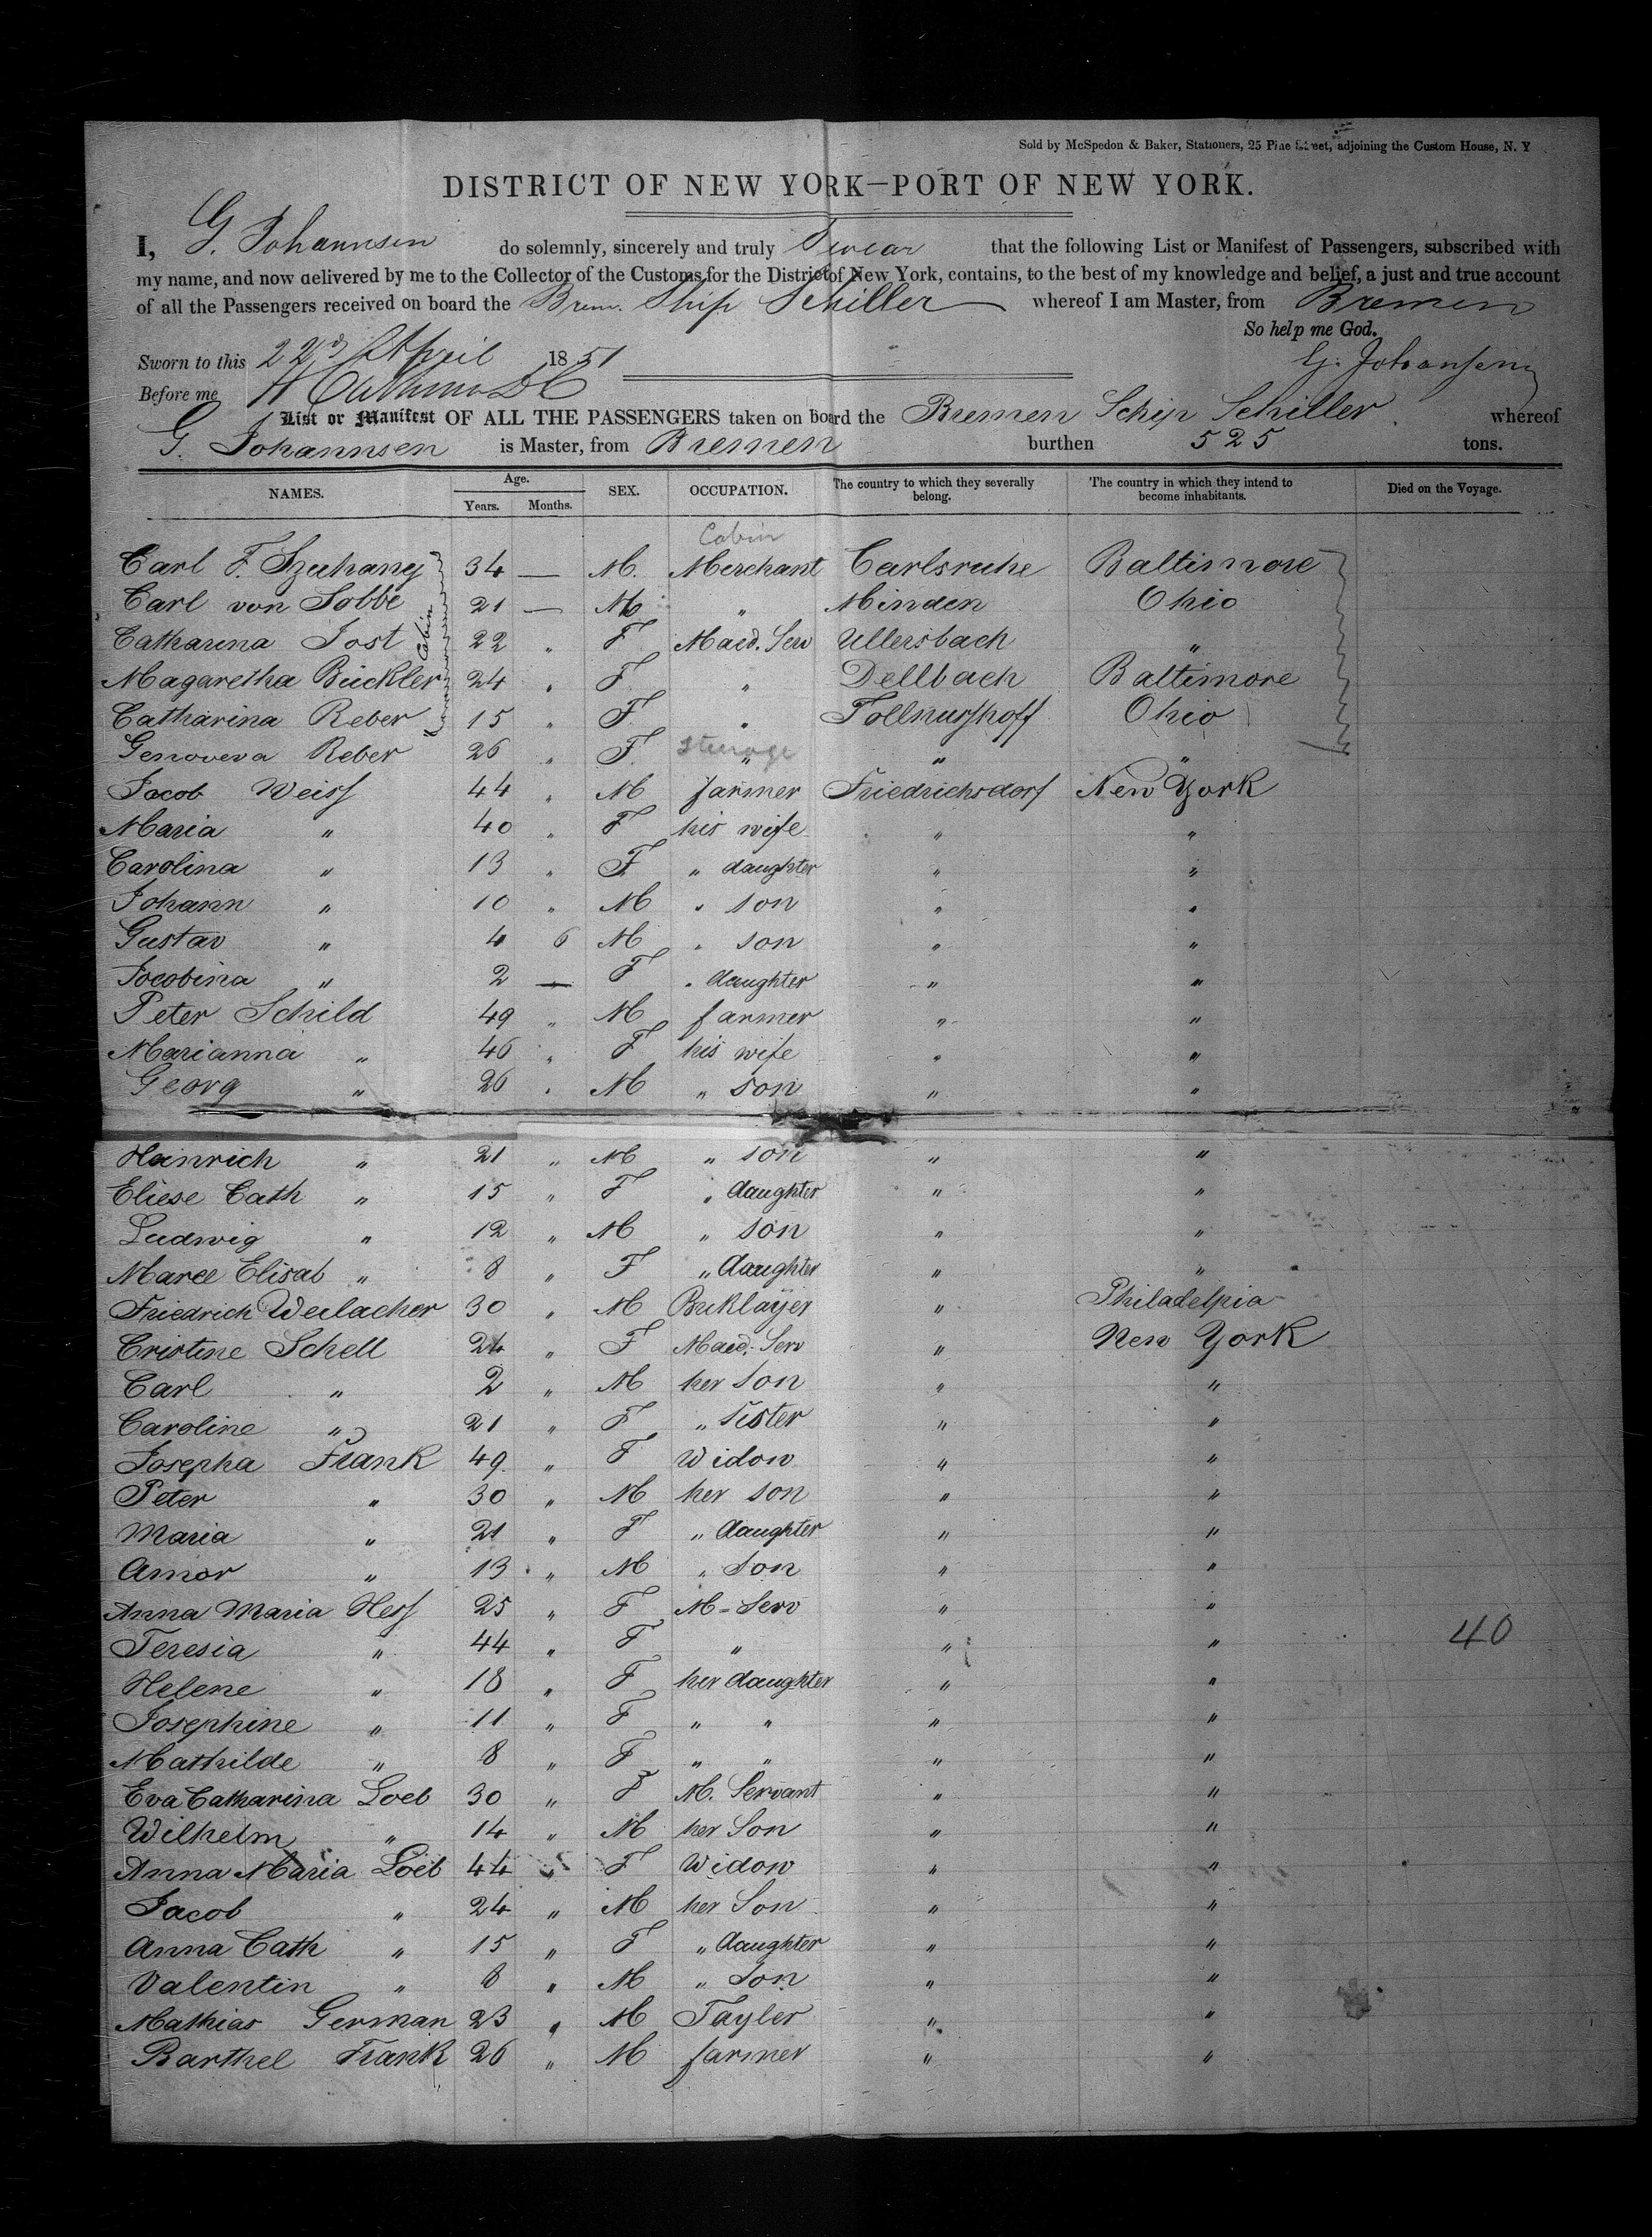 Sold by McSpedon & Baker, Stationers, 25 Pine Street, adjoining the Custom House, N. Y
DISTRICT OF NEW YORK—PORT OF NEW YORK.
I, G. Johannsen do solemnly, sincerely and truly Swear that the following List or Manifest of Passengers, subscribed with
my name, and now delivered by me to the Collector of the Customs for the District of New York, contains, to the best of my knowledge and belief, a just and true account
of all the Passengers received on board the Brem. Ship Schiller whereof I am Master, from Bremen
So help me God.
Sworn to this 22d April 1851 G. Johannsen
Before me
List or Manifest OF ALL THE PASSENGERS taken on board the Bremen Schip Schiller whereof
G. Johannsen is Master, from Bremen burthen 525 tons.
NAMES. Age. Years. Months. SEX. OCCUPATION. The country to which they severally belong. The country in which they intend to become inhabitants. Died on the Voyage.
Cabin
Carl F. 34 — M. Merchant Carlsruhe Baltimore
Carl von Sobbe 21 — M. " Minden Ohio
Cabin
Catharina Jost 22 " F Maed. Serv Ullersbach "
Magaretha Bückler 24 " F " Dellbach Baltimore
Catharina Reber 15 " F " Ohio
Steerage
Genoveva Reber 26 " F. " " "
Jacob Weiss 44 " M farmer Friedrichsdorf New York
Maria " 40 " F his wife " "
Carolina " 13 " F " daughter " "
Johann " 10 " M " son " "
Gustav " 4 6 M " son " "
Jocobina " 2 — F " daughter " "
Peter Schild 49 " M farmer " "
Marianna " 46 " F his wife " "
Georg " 26 " M " son " "
Heinrich " 21 " M " son " "
Eliese Cath " 15 " F " daughter " "
Ludwig " 12 " M " son " "
Maree Elisab " 8 " F " daughter " "
Friedrich Weilacher 30 " M Bricklayer " Philadelpia
Cristine Schell 24 " F Maed. Serv " New York
Carl " 2 " M her son " "
Caroline " 21 " F " sister " "
Josepha Frank 49 " F Widow " "
Peter " 30 " M her son " "
Maria " 21 " F " daughter " "
Amor " 13 " M " son " "
Anna Maria Hess 25 " F M = Serv " "
Teresia " 44 " F " " " 40
Helene " 18 " F her daughter " "
Josephine " 11 " F " " " "
Mathilde " 8 " F " " " "
Eva Catharina Loeb 30 " F M. Servant " "
Wilhelm " 14 " M her Son " "
Anna Maria Loeb 44 " F Widow " "
Jacob " 24 " M her Son " "
Anna Cath " 15 " F " daughter " "
Valentin " 8 " M " Son " "
Mathias German 23 " M Tayler " "
Barthel Frank 26 " M farmer " "